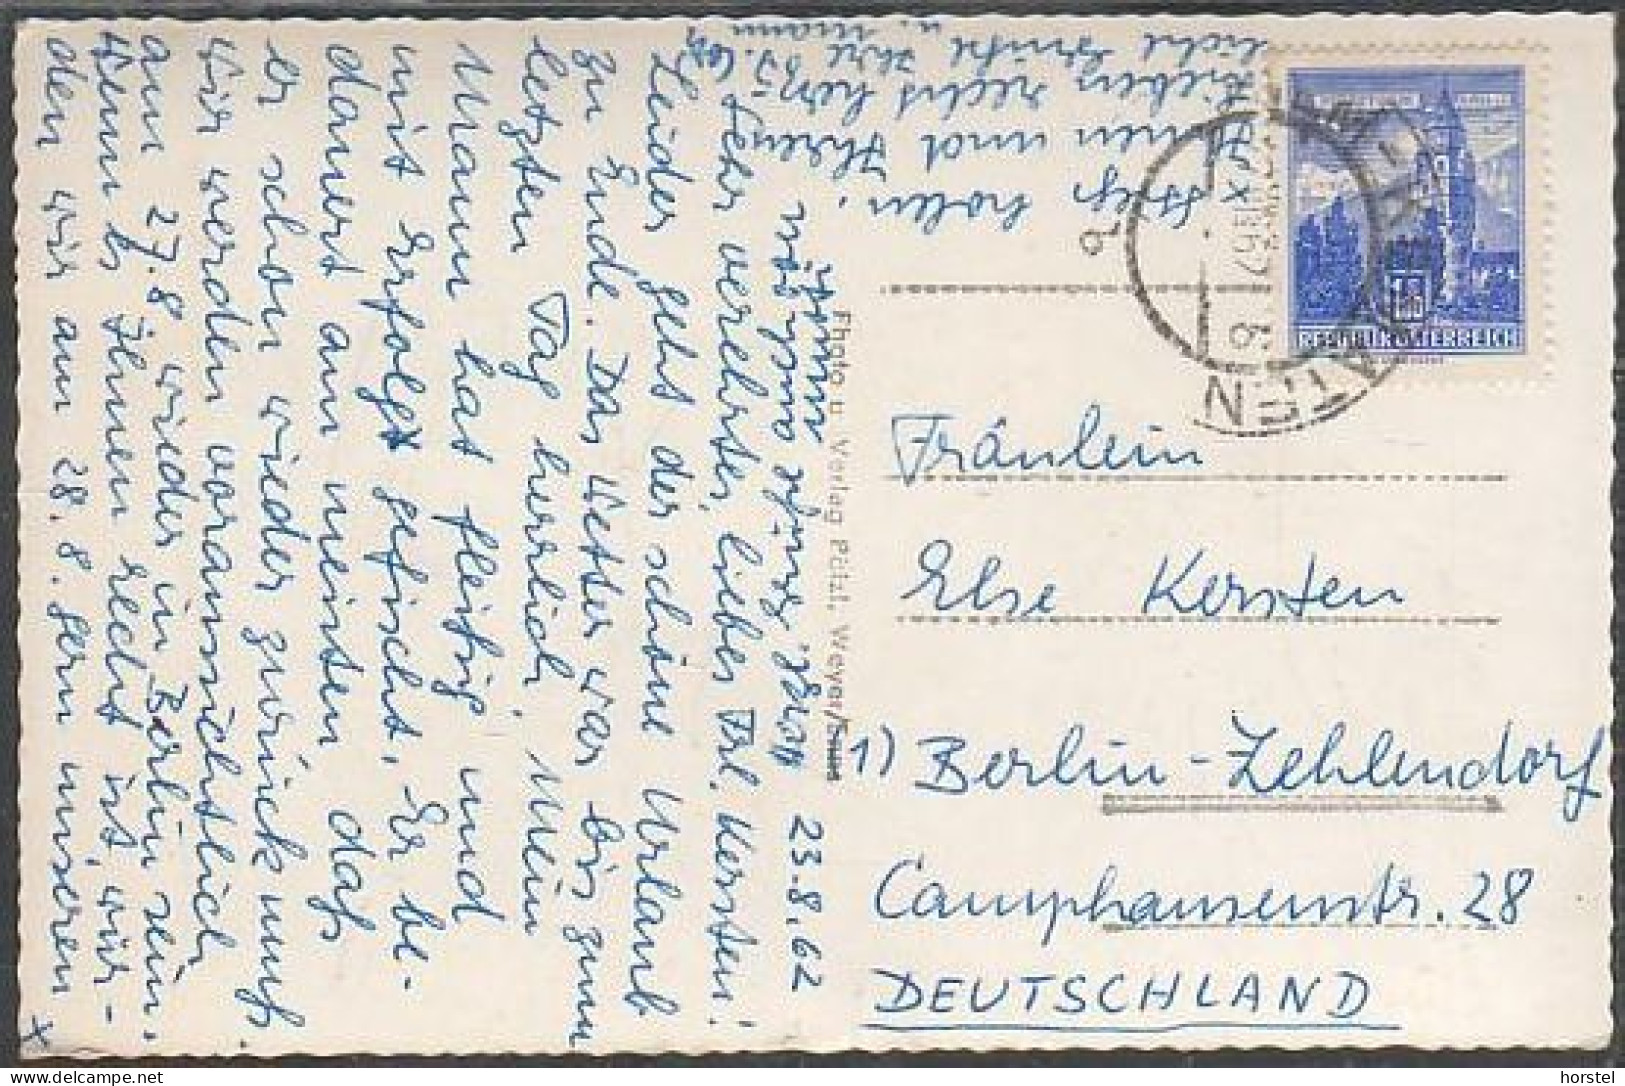 23.8.62
Sehr verehrtes, liebes Frl. Kersten!
Leider geht der schöne Urlaub
zu Ende. Das Wetter war bis zum
letzten Tag herrlich. Mein
Mann hat fleißig und
mit Erfolg gefischt. Er be-
dauert am meisten daß
er schon wieder zurück muß.
Wir werden voraussichtlich
am 27.8 wieder in Berlin sein.
Wenn es Ihnen recht ist, wür-
den wir am 28.8. gern unseren
holen.
Ihnen und Ihren
recht herz-
liche Grüße Ihre
u. Mann
Photo u. Verlag Pölzl, Weyer/Enns
REPUBLIK ÖSTERREICH
Fräulein
Else Kersten
1) Berlin-Zehlendorf
Camphausenstr. 28
DEUTSCHLAND
horstel